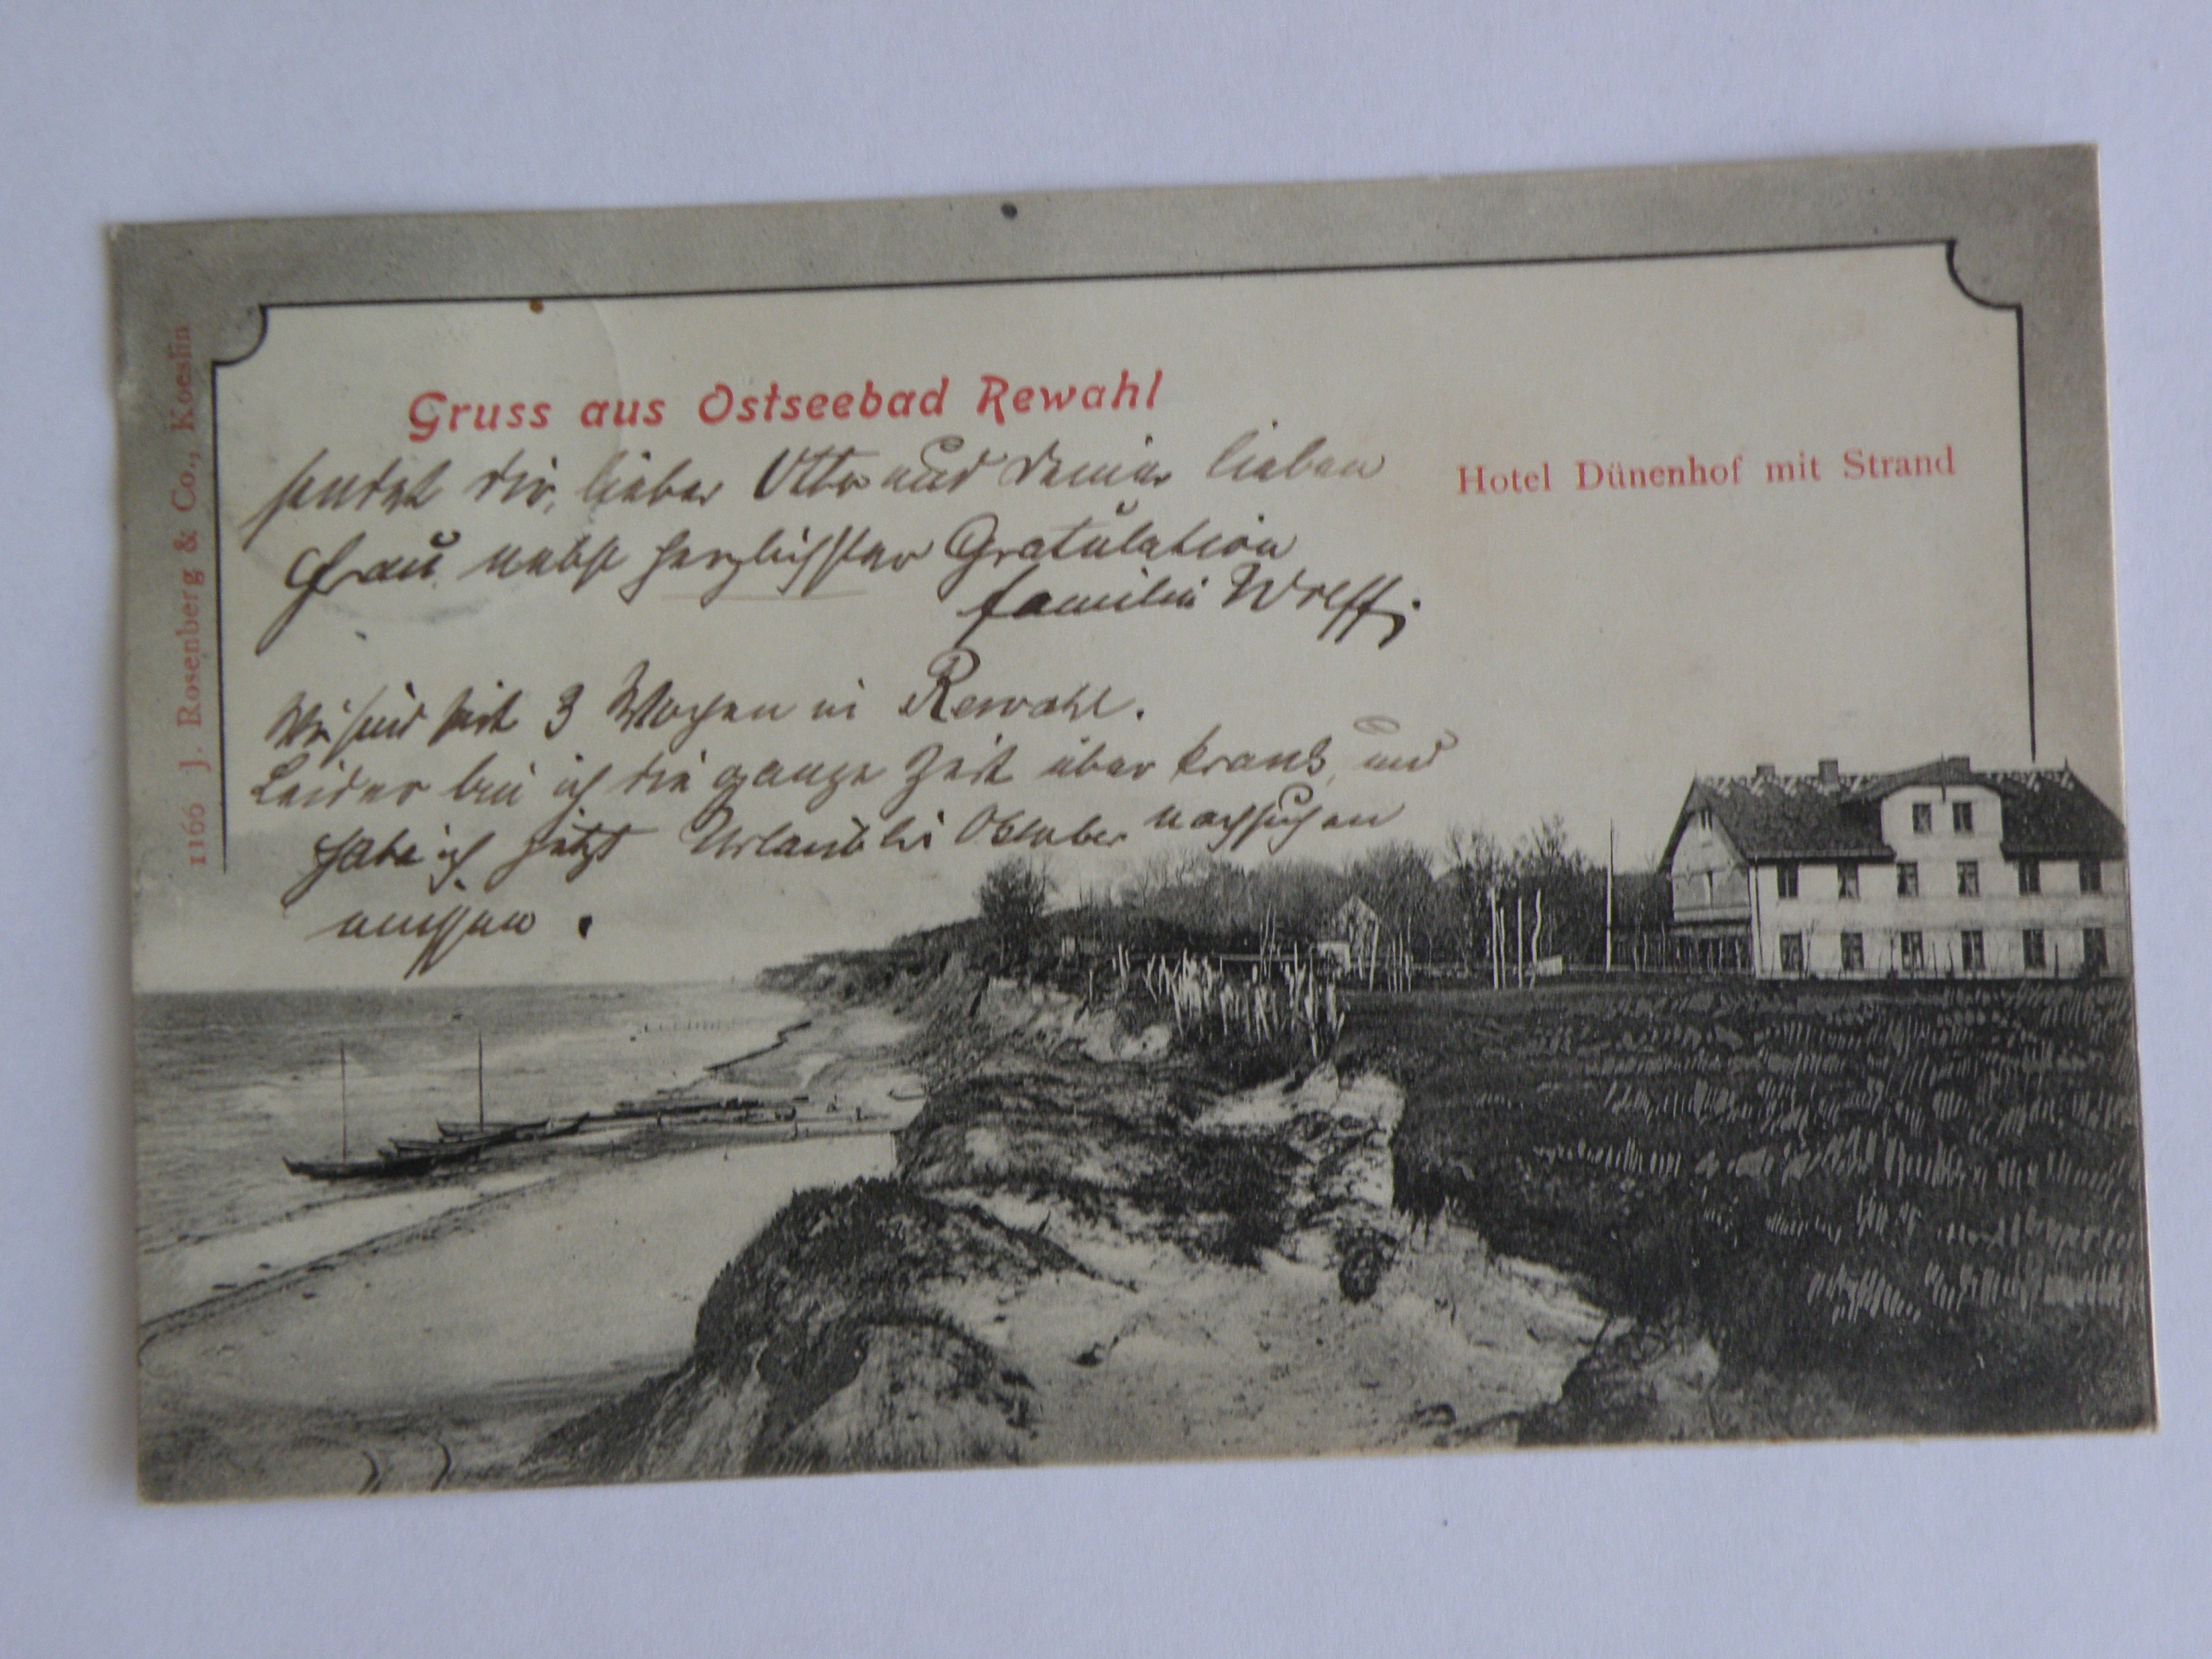 Gruss aus Ostseebad Rewahl
sendet dir, lieber Otto und deiner lieben
Frau nebst herzlichster Gratulation
Familie Wolff.
Hotel Dünenhof mit Strand
Wir sind seit 3 Wochen in Rewahl.
Leider bin ich die ganze Zeit über krank und
habe ich jetzt Urlaub bis Oktober nachsuchen
müssen.
1166 J. Rosenberg & Co., Koeslin